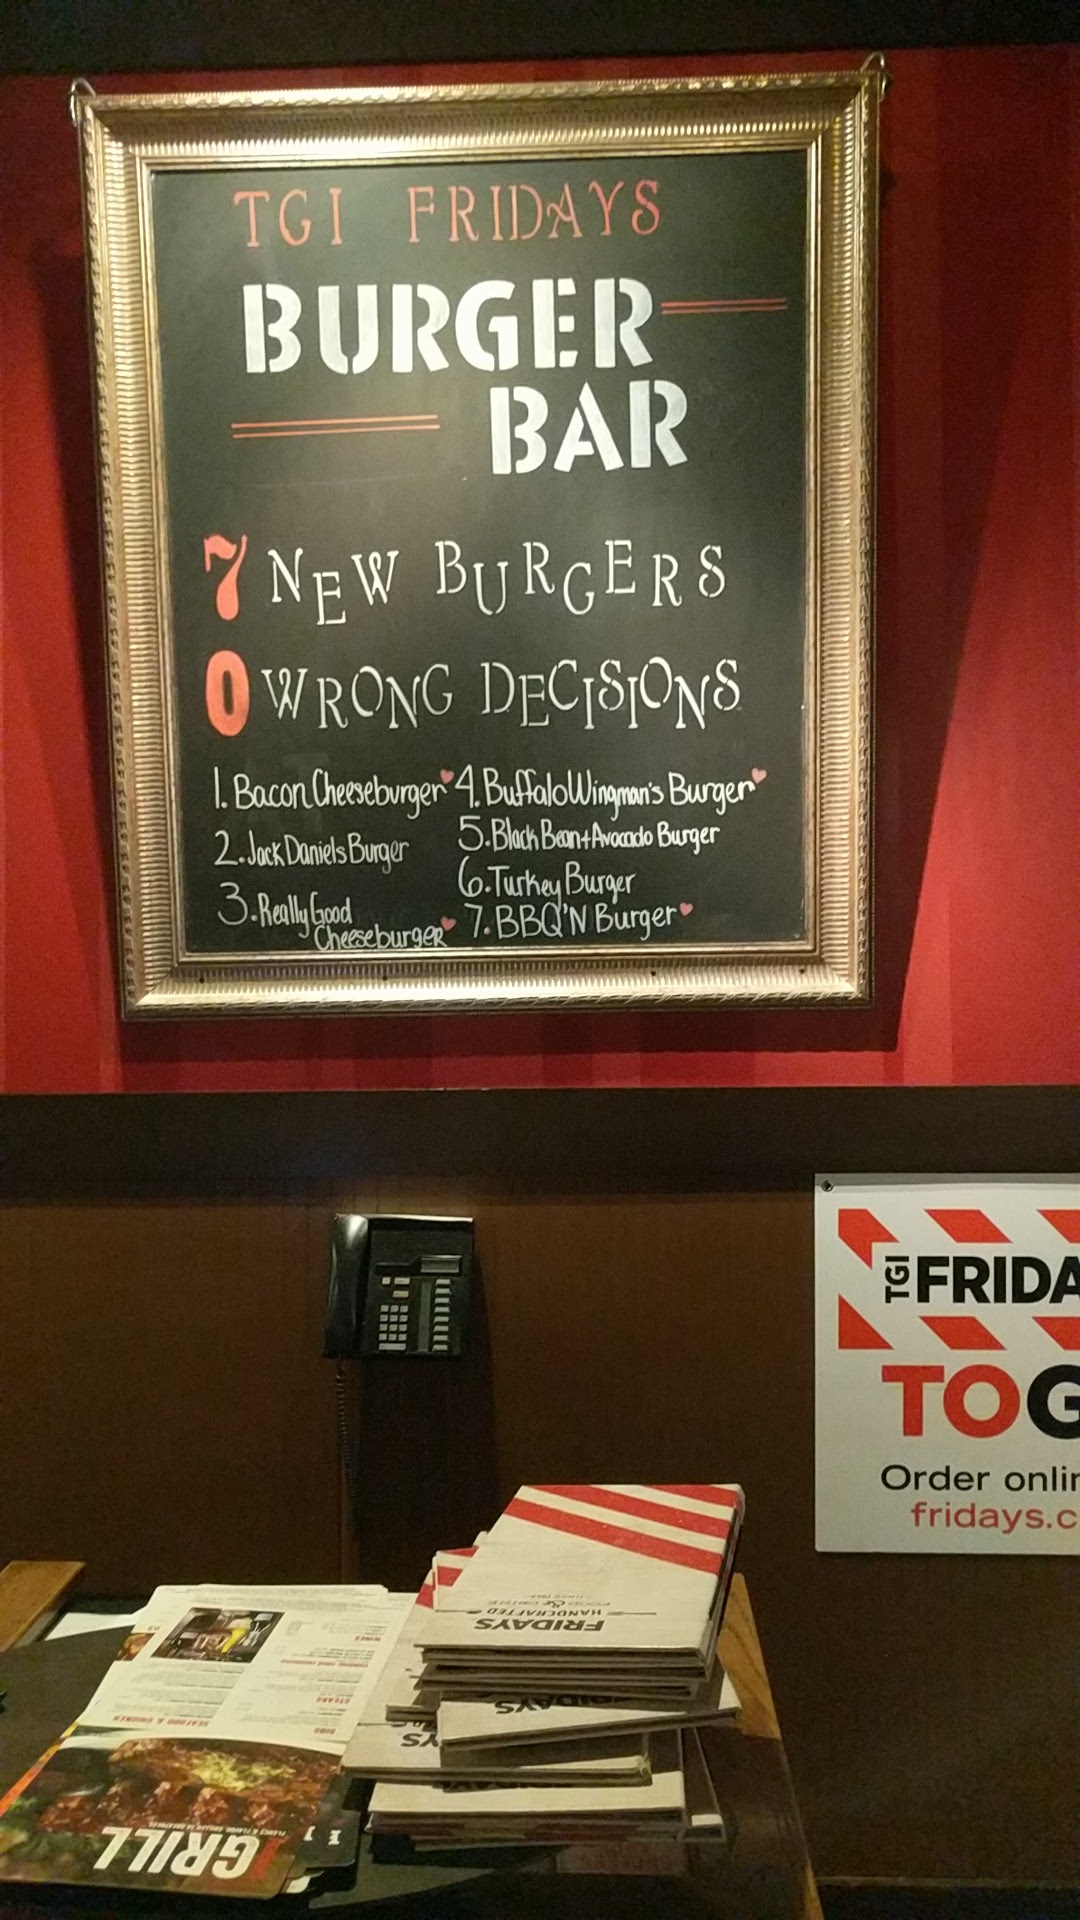 TGI FRIDAYS
BURGER
BAR
7 NEW BURGERS
0 WRONG DECISIONS
1. Bacon Cheeseburger
2. Jack Daniels Burger
3. Really Good
Cheeseburger
4. Buffalo Wingman's Burger
5. Black Bean + Avocado Burger
6. Turkey Burger
7. BBQ'N Burger
TGI FRIDA
TOG
Order onlin
fridays.c
FRIDAYS
HANDCRAFTED
FOOD & DRINK
FRIDAYS
WINGS
STEAKS
RIBS
SEAFOOD & CHICKEN
GRILL